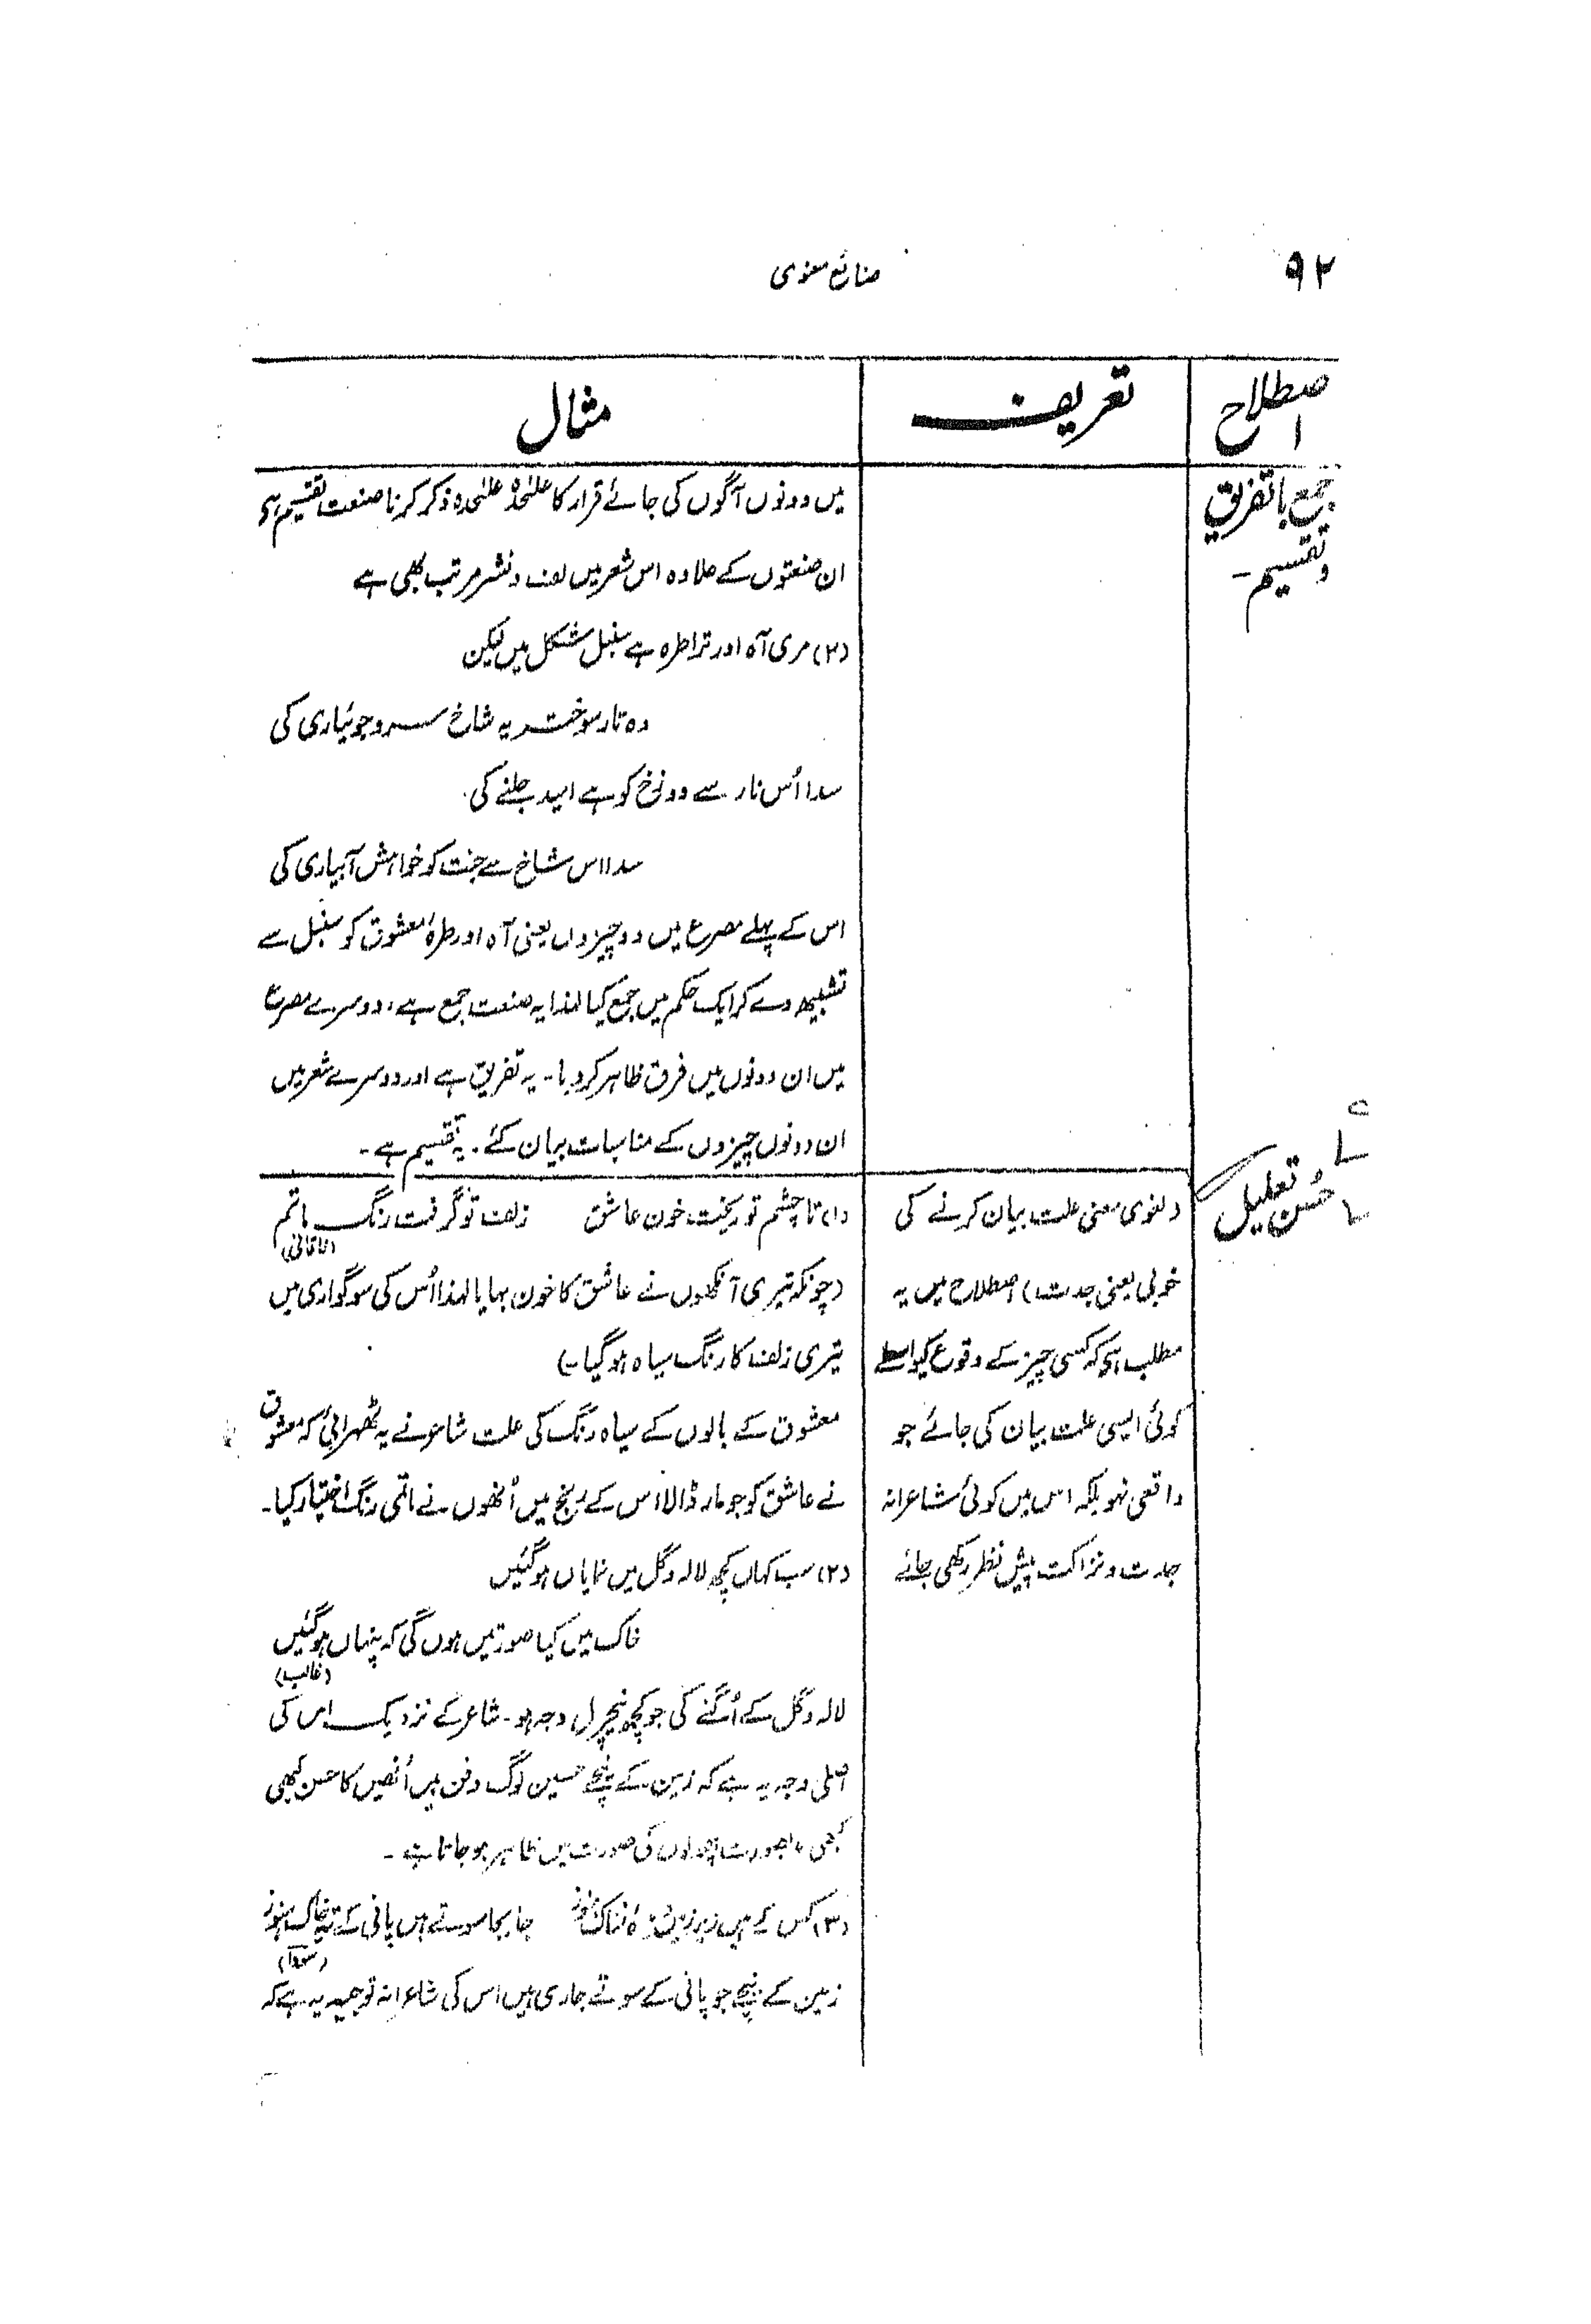 ۹۲
صنائع معنوی
اصطلاح
تعریف
مثال
جمع باتفریق
و تقسیم۔
میں دونوں آگوں کی جائے قرار کا علٰحدہ علٰحدہ ذکر کرنا صنعت تقسیم ہی
ان صنعتوں کے علاوہ اس شعر میں لف و نشر مرتب بھی ہے
(۲) مری آہ اور ترا طرہ ہے سنبل شکل میں لیکن
وہ تار سوختہ یہ شاخ سرو جوئباری کی
سدا اُس نار سے دوزخ کو ہے امید جلنے کی
سدا اس شاخ سے جنت کو خواہش آبیاری کی
اس کے پہلے مصرع میں دو چیزوں یعنی آہ اور طرۂ معشوق کو سنبل سے
تشبیہ دے کر ایک حکم میں جمع کیا لہٰذا یہ صنعت جمع ہے، دوسرے مصرع
میں ان دونوں میں فرق ظاہر کر دیا۔ یہ تفریق ہے اور دوسرے شعر میں
ان دونوں چیزوں کے مناسبات بیان کئے۔ یہ تقسیم ہے۔
حُسن تعلیل
(لغوی معنی علت بیان کرنے کی
خوبی یعنی جدت) اصطلاح میں یہ
مطلب ہی کہ کسی چیز کے وقوع کیواسطے
کوئی ایسی علت بیان کی جائے جو
واقعی نہو بلکہ اس میں کوئی شاعرانہ
جدت و نزاکت پیش نظر رکھی جائے
(۱) تا چشم تو ریخت خون عاشق زلف تو گرفت رنگ ماتم
(خاقانی)
(چونکہ تیری آنکھوں نے عاشق کا خون بہایا لہٰذا اُس کی سوگواری میں
تیری زلف کا رنگ سیاہ ہو گیا۔)
معشوق کے بالوں کے سیاہ رنگ کی علت شاعر نے یہ ٹھہرائی کہ معشوق
نے عاشق کو جو مار ڈالا اس کے رنج میں اُنھوں نے ماتمی رنگ اختیار کیا۔
(۲) سب کہاں کچھ لالہ و گل میں نمایاں ہو گئیں
خاک میں کیا صورتیں ہوں گی کہ پنہاں ہو گئیں
(غالب)
لالہ و گل کے اُگنے کی جو کچھ نیچرل وجہ ہو۔ شاعر کے نزدیک اس کی
اصلی وجہ یہ ہے کہ زمین کے نیچے حسین لوگ دفن ہیں اُنھیں کا حسن کبھی
کبھی خوبصورت پھولوں کی صورت میں ظاہر ہو جاتا ہے۔
(۳) کس کے ہیں زیر زمین دیدۂ نمناک ہنوز جا بجا سوتے ہیں پانی کے تہِ خاک ہنوز
(سودا)
زمین کے نیچے جو پانی کے سوتے جاری ہیں اس کی شاعرانہ توجیہہ یہ ہے کہ